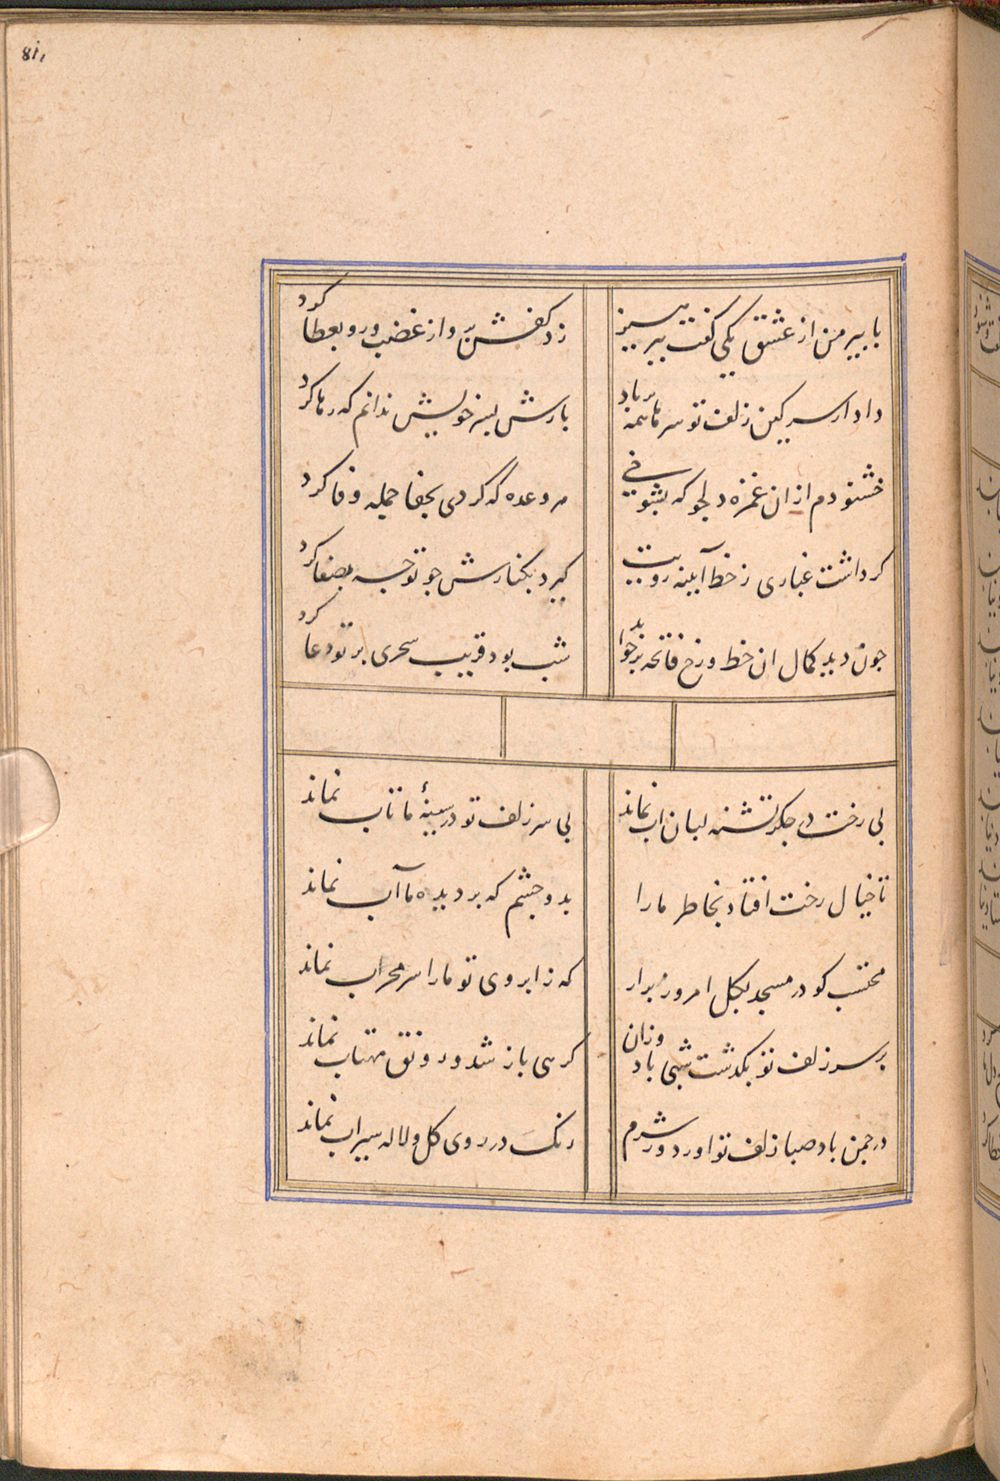 81
با پیر من از عشق یکی گفت بپرهیز
زد کفش و از غضب و رو بعطا کرد
داد ار سرکین زلف تو سر ما همه برباد
بازش بسر خویش ندانم که رها کرد
خشنودم ازان غمزه دلجو که بشوخی
هر وعده که کردی بجفا جمله وفا کرد
کرداشت غباری ز خط آیینه رویت
کیرد بکنارش جو توجه بصفا کرد
جون دید کمال ان خط و رخ فاتحه برخواند
شب بود قریب سحری بر تو دعا کرد
بی رخت در جکر تشنه لبان اب نماند
بی سر زلف تو در سینهٔ ما تاب نماند
تا خیال رخت افتاد بخاطر ما را
بدو جشم که بر دیده ما آب نماند
محتسب کو در مسجد بکل امروز برار
که ز ابروی تو ما را سر محراب نماند
بر سر زلف تو بکدشت شبی باد وزان
کرهی باز شد و رونق مهتاب نماند
در جمن باد صبا زلف تو اورد و ز شرم
رنک در روی کل و لاله سیراب نماند